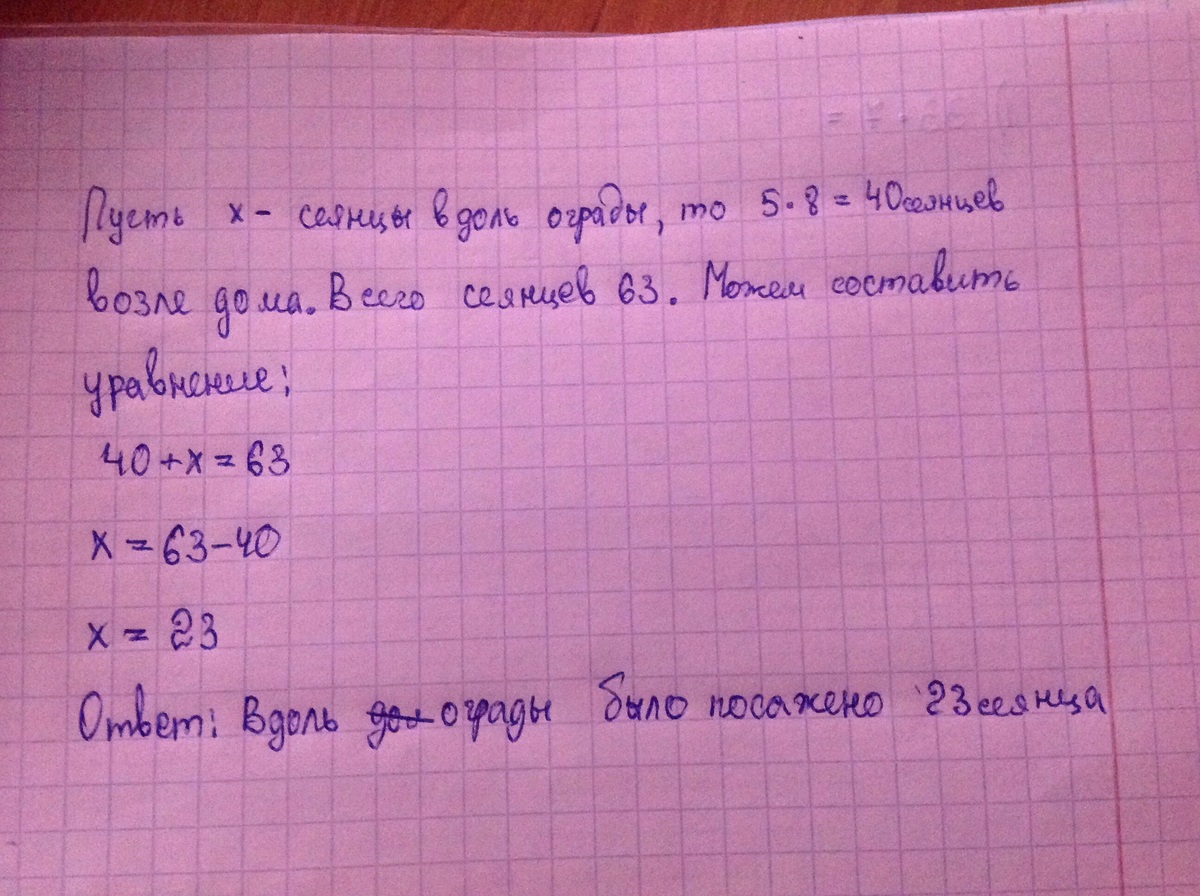 Пусть x - сеянцы вдоль ограды, то 5·8 = 40 сеянцев
возле дома. Всего сеянцев 63. Можем составить
уравнение:
40+x=63
x = 63-40
x = 23
Ответ: Вдоль ограды было посажено 23 сеянца